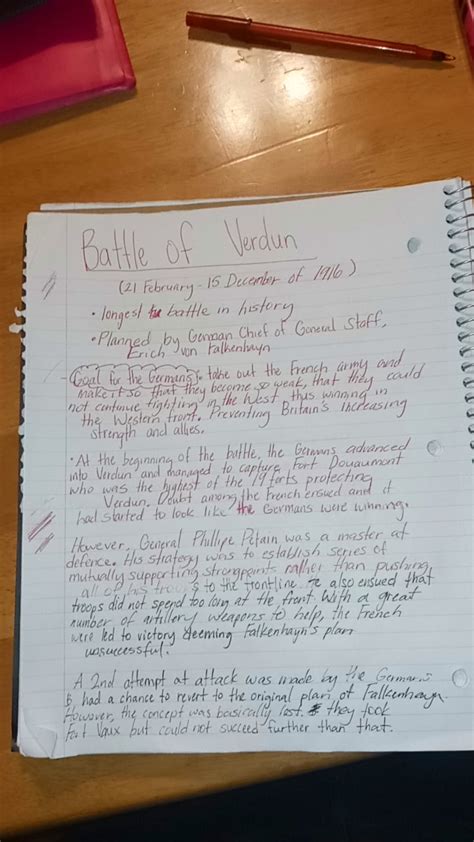 Battle of Verdun
(21 February - 15 December of 1916)
• longest battle in history
• Planned by German Chief of General Staff,
Erich von Falkenhayn
- Goal for the Germans: take out the French army and
make it so that they become so weak, that they could
not continue fighting in the West, thus winning in
the Western front. Preventing Britain's increasing
strength and allies.
• At the beginning of the battle, the Germans advanced
into Verdun and managed to capture Fort Douaumont
who was the highest of the 19 forts protecting
Verdun. Doubt among the French ensued and it
had started to look like the Germans were winning.
However, General Phillipe Petain was a master at
defence. His strategy was to establish series of
mutually supporting strongpoints rather than pushing
all of his to the frontline. also ensued that
troops did not spend too long at the front. With a great
number of artillery weapons to help, the French
were led to victory deeming Falkenhayn's plan
unsuccessful.
A 2nd attempt at attack was made by the Germans
had a chance to revert to the original plan of Falkenhayn
However, the concept was basically lost. they took
Fort Vaux but could not succeed further than that.